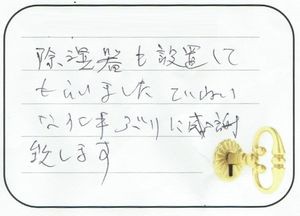 除湿器も設置して
もらいました ていねい
な仕事ぶりに感謝
致します